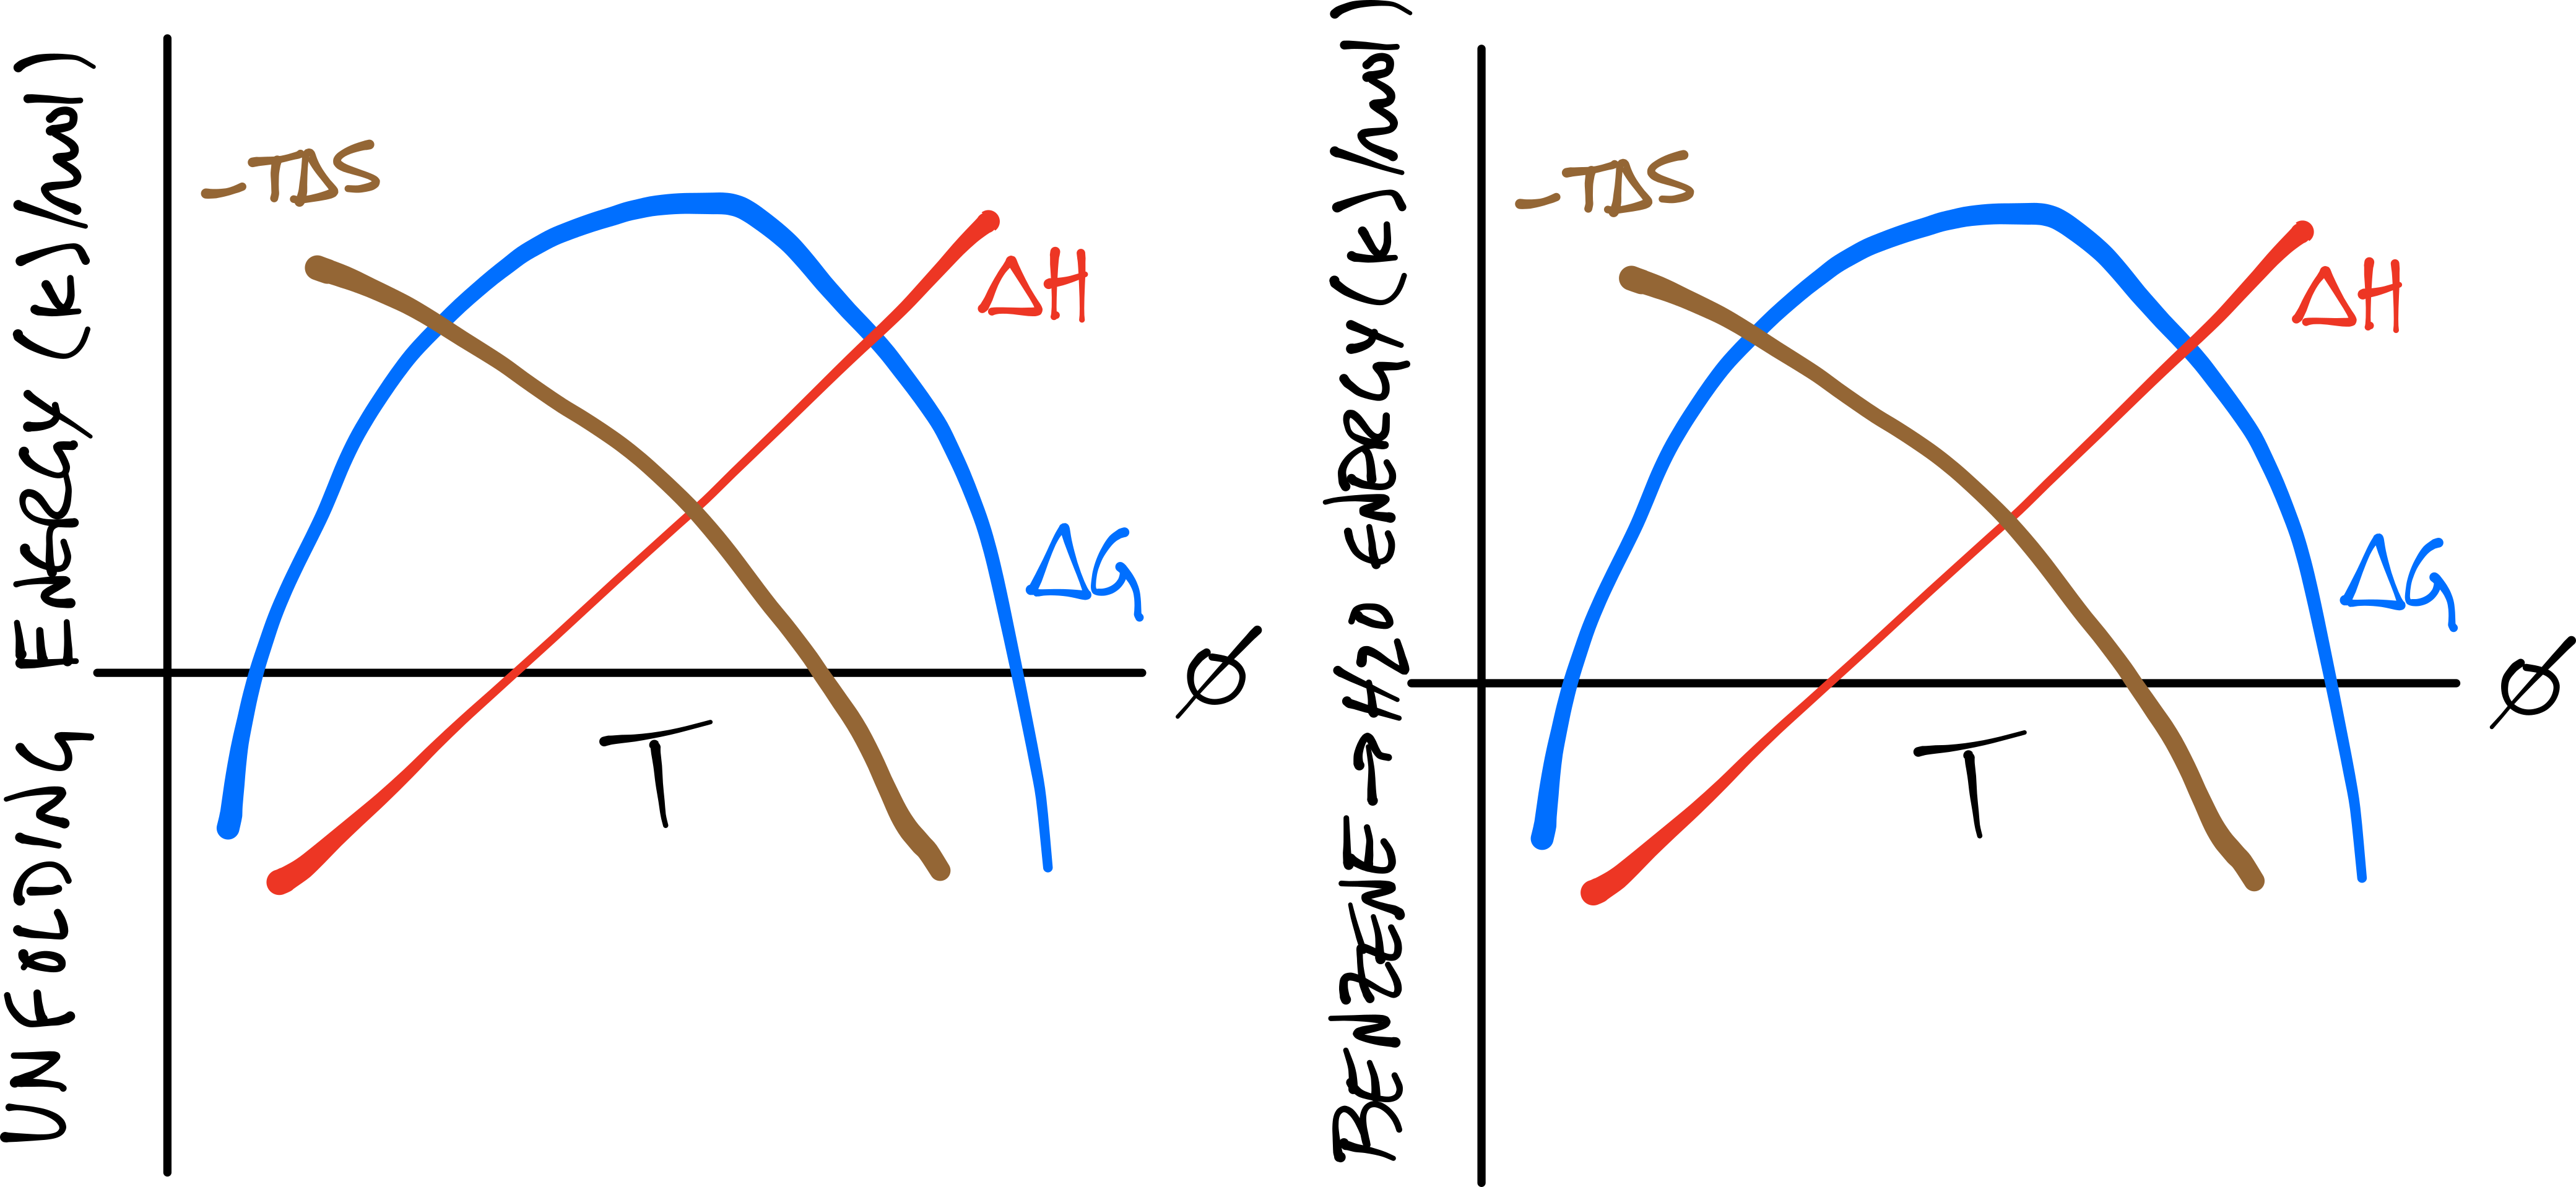 UNFOLDING ENERGY (kJ/mol)
-TΔS
ΔH
ΔG
T
Ø
BENZENE→H2O ENERGY (kJ/mol)
-TΔS
ΔH
ΔG
T
Ø